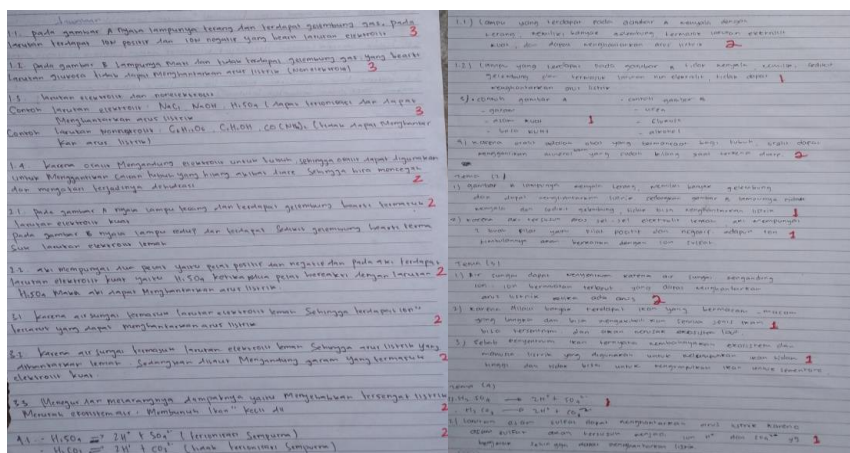 1.1. Pada gambar A nyala lampunya terang dan terdapat gelembung gas, pada
larutan terdapat ion positif dan ion negatif yang berarti larutan elektrolit
3
1.2. pada gambar B lampunya mati dan tidak terdapat gelembung gas yang berarti
larutan glukosa tidak dapat menghantarkan arus listrik (nonelektrolit)
3
1.3. larutan elektrolit dan nonelektrolit.
Contoh larutan elektrolit : NaCl, NaOH, H2SO4 (dapat terionisasi dan dapat
Menghantarkan arus listrik)
3
Contoh larutan nonelektrolit : C6H12O6, C2H5OH, CO(NH2)2 (tidak dapat Menghantar
kan arus listrik)
1.4. karena oralit Mengandung elektrolit untuk tubuh, sehingga oralit dapat digunakan
untuk Menggantikan cairan tubuh yang hilang akibat diare. Sehingga bisa mencegah
dan mengobati terjadinya dehidrasi
2
2.1. pada gambar A nyala lampu terang dan terdapat gelembung berarti termasuk
2
larutan elektrolit kuat
pada gambar B nyala lampu redup dan terdapat sedikit gelembung berarti terma
suk larutan elektrolit lemah
2.2. aki mempunyai dua pelat yaitu pelat positif dan negatif dan pada aki terdapat
larutan elektrolit kuat yaitu H2SO4 ketika pelat bereaksi dengan larutan
2
H2SO4 Maka aki dapat Menghantarkan arus listrik.
3.1 karena air sungai termasuk larutan elektrolit lemah sehingga terdapat ion"
terlarut yang dapat menghantarkan arus listrik
2
3.2 karena air sungai termasuk larutan elektrolit lemah sehingga arus listrik yang
dihantarkan lemah. Sedangkan dilaut Mengandung garam yang termasuk
2
elektrolit kuat.
3.3 Menegur dan melarangnya dampaknya yaitu Menyebabkan tersengat listrik
2
Merusak ekosistem air. Membunuh ikan" kecil
4.1. - H2SO4 ⇌ 2H+ + SO4 2- (terionisasi sempurna)
2
- H2CO3 ⇌ 2H+ + CO3 2- (tidak terionisasi sempurna)
1.1) Lampu yang terdapat pada gambar A menyala dengan
terang, memiliki banyak gelembung termasuk larutan elektrolit
kuat, dan dapat menghantarkan arus listrik
2
1.2) Lampu yang terdapat pada gambar B tidak menyala, memiliki sedikit
gelembung dan termasuk larutan non elektrolit, tidak dapat
1
menghantarkan arus listrik
3) contoh gambar A
- contoh gambar B
- garam
- urea
- asam kuat
1
- glukosa
- basa kuat
- alkohol
4) karena oralit adalah obat yang bermanfaat bagi tubuh, oralit dapat
menggantikan mineral yang sudah hilang saat terkena diare
2
Tema (2)
1) gambar A lampunya menyala terang, memiliki banyak gelembung
dan dapat menghantarkan listrik sedangkan gambar B lampunya tidak
menyala dan sedikit gelembung, tidak bisa menghantarkan listrik
1
2) karena aki tersusun dari sel-sel elektrolit lemah, aki mempunyai
2 buah pelat yaitu pelat positif dan negatif, adapun ion
1
Tema (3)
1) Air sungai dapat karena air sungai mengandung
ion, ion bermuatan tersebut yang dapat menghantarkan
arus listrik ketika ada arus
2
2) karena banyak terdapat ikan yang bermacam-macam
1
bisa tersetrum dan akan merusak ekosistem laut
1
Tema (4)
1) H2SO4 → 2H+ + SO4 2-
1
H2CO3 → 2H+ + CO3 2-
2) larutan asam sulfat dapat menghantarkan arus listrik karena
asam sulfat akan terurai menjadi ion H+ dan SO4 2-
1
bergerak sehingga dapat menghantarkan listrik